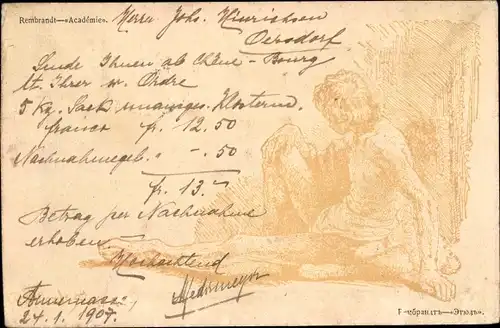 Rembrandt—«Académie».
Herrn Johs. Hinrichsen
Oersdorf
Sende Ihnen ab Chêne-Bourg
lt. Ihrer w. Ordre
5 Kg. Sack
franco fr. 12.50
Nachnahmegeb. " -.50
fr. 13.-
Betrag per Nachnahme
erhoben.
Hochachtend
Annemasse,
24.1.1907.
Рембрандтъ—«Этюдъ».